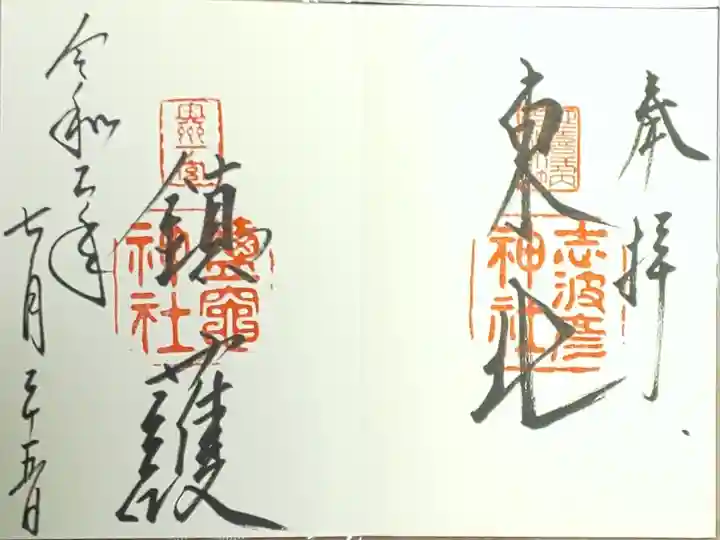 奉拝
東北
志波彦
神社
鎮護
奥州一宮
鹽竈
神社
令和二年
七月二十五日